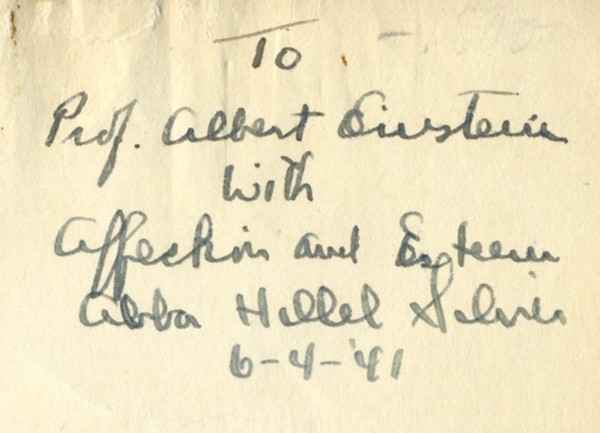 To
Prof. Albert Einstein
With
Affection and Esteem
Abba Hillel Silver
6-4-'41